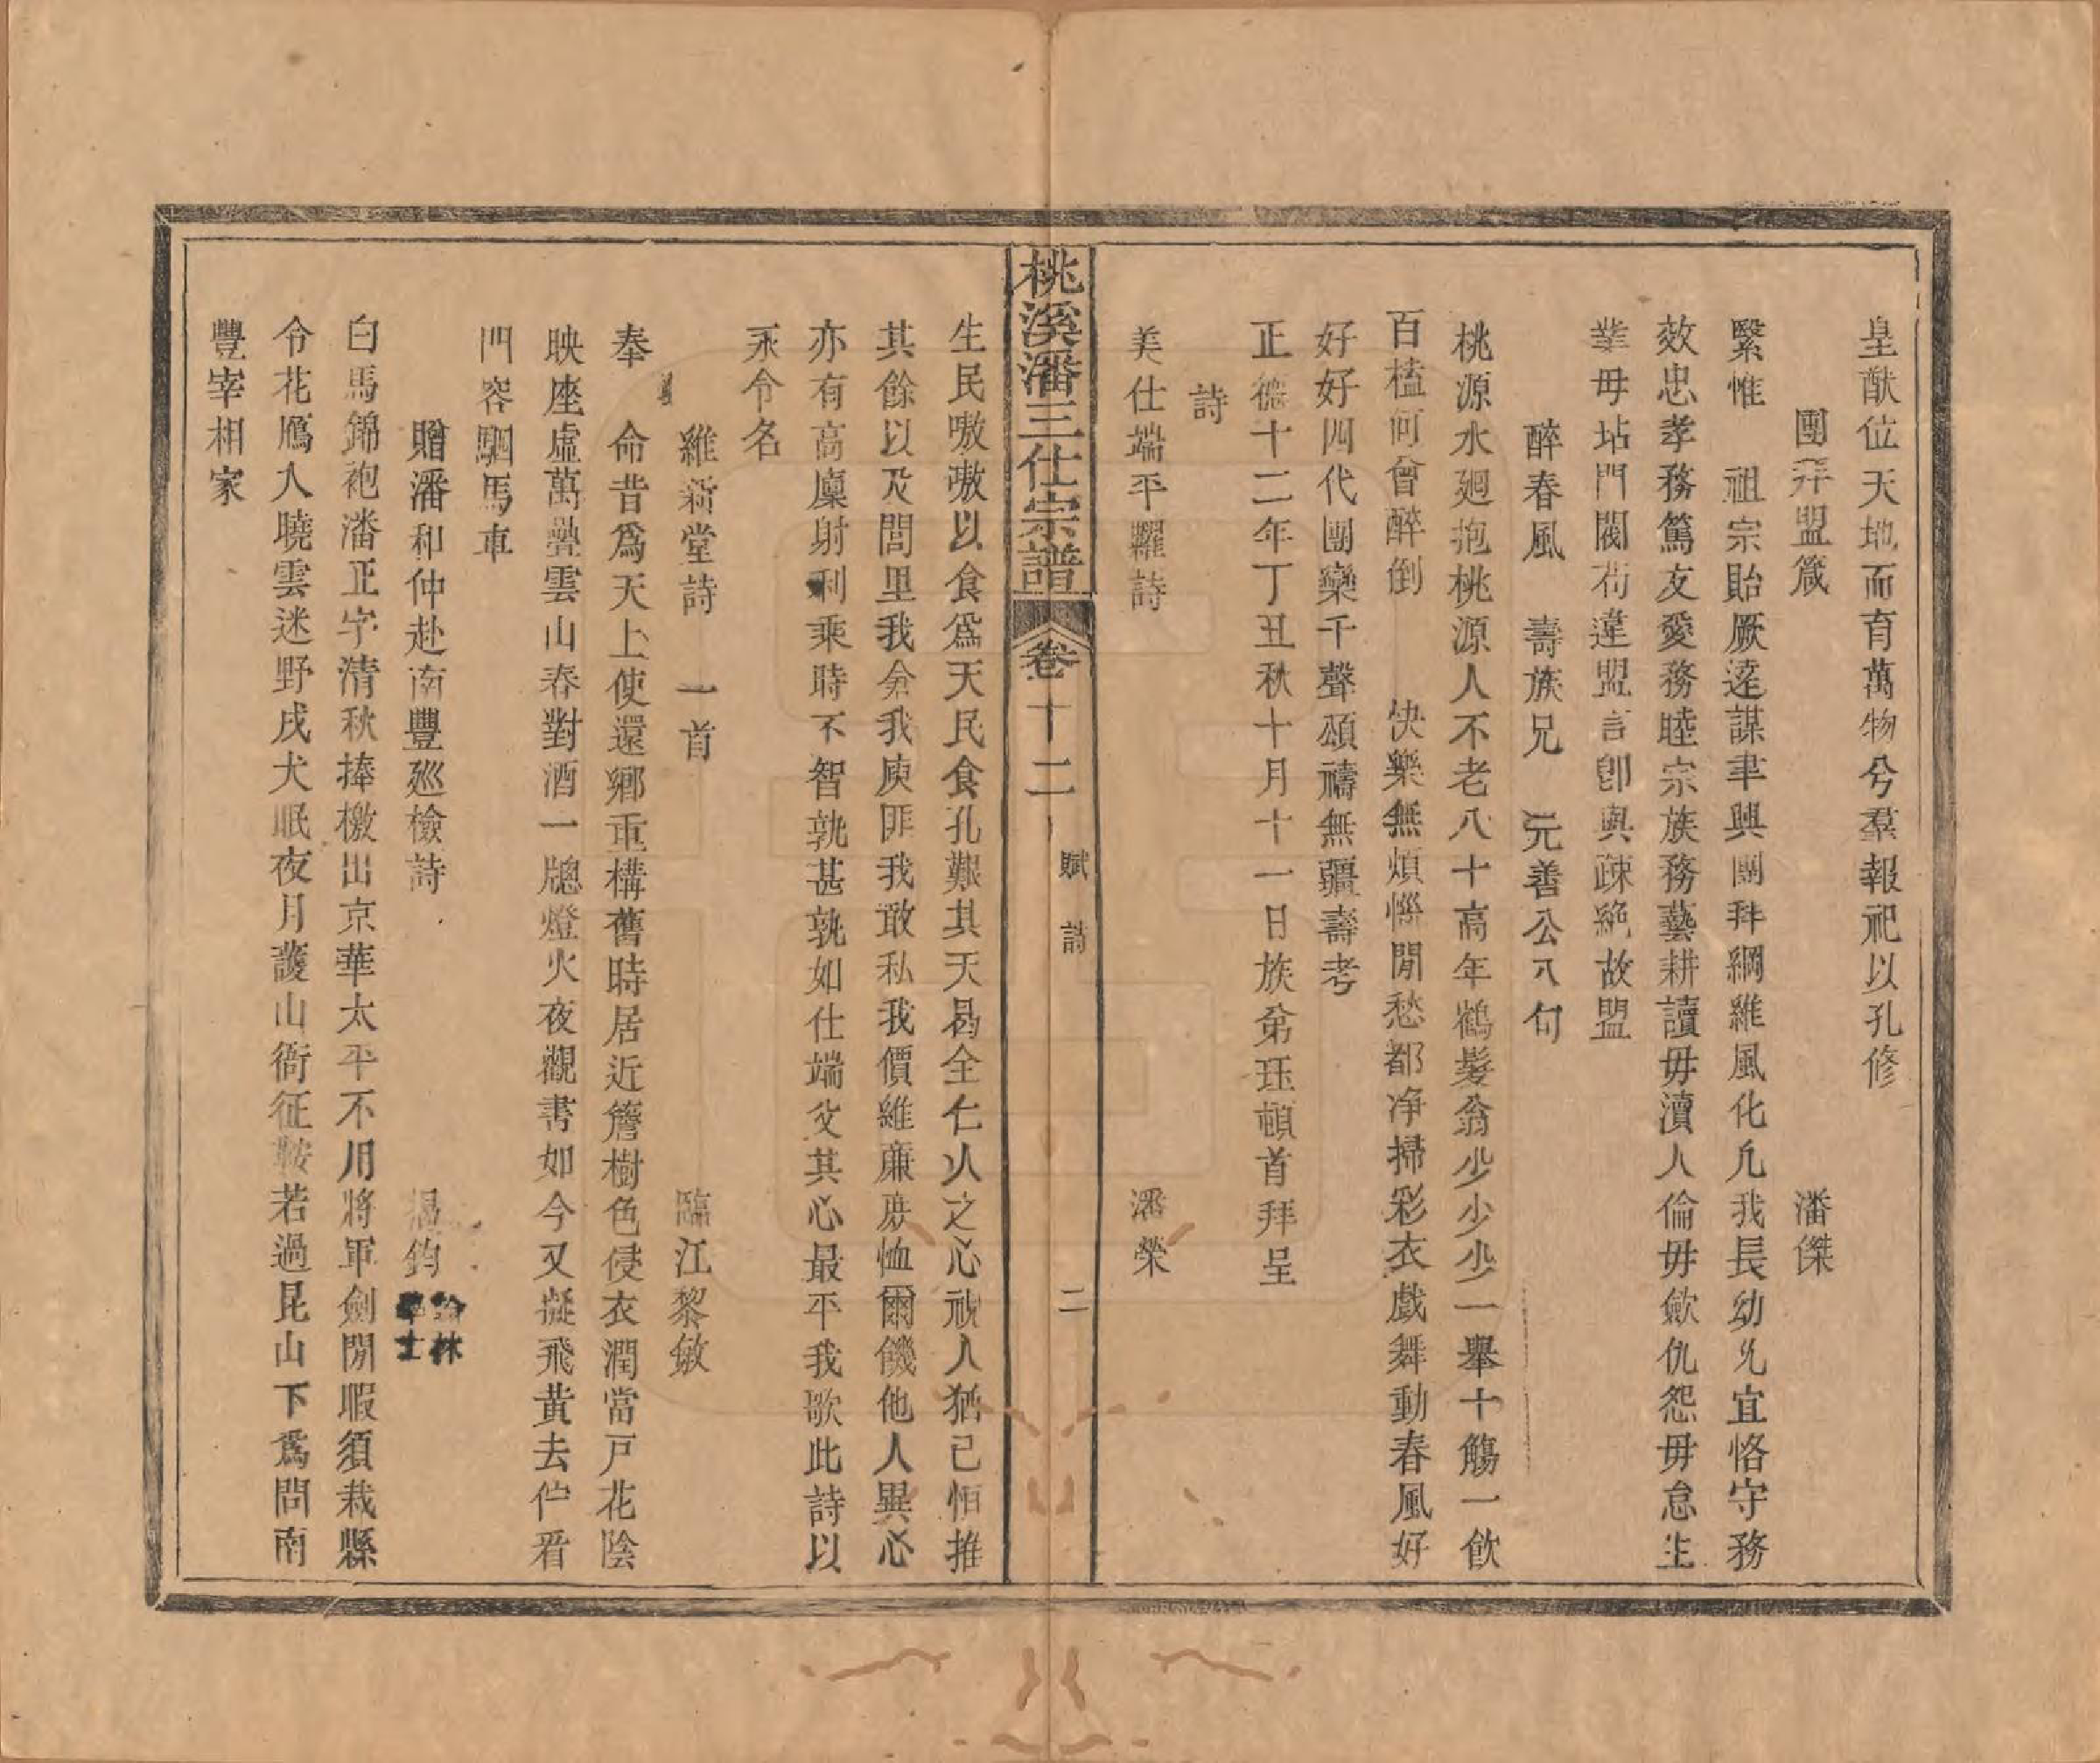 皇猷位天地而育萬物兮羣報祀以孔修
團拜盟箴　潘傑
緊惟　祖宗貽厥逵謀聿興團拜綱維風化凢我長幼允宜恪守務
效忠孝務篤友愛務睦宗族務藝耕讀毋瀆人倫毋歛仇怨毋怠生
業毋坫門閥苟違盟言卽與疎絕故盟
醉春風　壽族兄　元善公八句
桃源水廻抱桃源人不老八十高年鶴髮翁少少少少一舉十觴一飲
百榼何會醉倒　快樂無煩惱閒愁都净掃彩衣戲舞動春風好
好好四代團欒千聲頌禱無疆壽考
正德十二年丁丑秋十月十一日族弟珏頓首拜呈
詩
美仕端平糶詩　潘榮
桃溪潘三仕宗譜　卷十二　賦　詩　二
生民嗷嗷以食爲天民食孔艱其天曷全仁人之心視人猶己怛推
其餘以及閭里我侖我庾匪我敢私我價維廉庶恤爾饑他人異心
亦有高廩射利乘時不智孰甚孰如仕端父其心最平我歌此詩以
永令名
維新堂詩　一首　臨江黎敏
奉　命昔爲天上使還鄉重構舊時居近簷樹色侵衣潤當戸花陰
映座虛萬疊雲山春對酒一牕燈火夜觀書如今又凝飛黃去伫看
門容駟馬車
贈潘和仲赴南豐廵檢詩　揭鈞　翰林學士
白馬錦袍潘正字清秋捧檄出京華太平不用將軍劍閒暇須栽縣
令花鴈入曉雲迷野戍犬眠夜月護山衙征鞍若過昆山下爲問南
豐宰相家